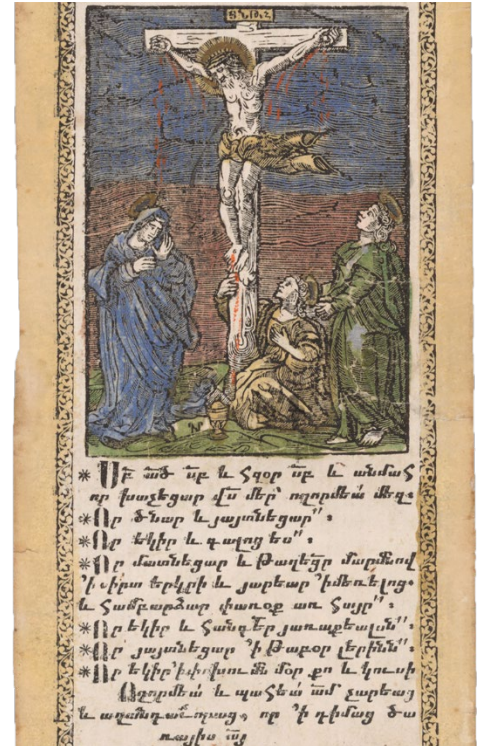 Ս՟բ ա՟ծ ս՟բ և հզօր ս՟բ և անմահ
որ խաչեցար վ՟ս մեր՝ ողորմեա մեզ։
Որ ծնար և յայտնեցար՛՛։
Որ եկիր և գալոց ես՛՛։
Որ մատնեցար և թաղեցր մարմնով
՚ի սիրտ երկրի և յարեար ՚ի մեռելոց։
և համբարձար փառօք առ հայր՛՛։
Որ եկիր և հանգեր յառաքեալսն՛՛։
Որ յայտնեցար ՚ի Թաբօր լերինն՛՛։
Որ եկիր ՚ի փոխումն մօր քո և կուսի
Ողորմեա և պահեա ա՟մ չարեաց
և որ ՚ի դիմաց ծա
ռայիս ա՟յ